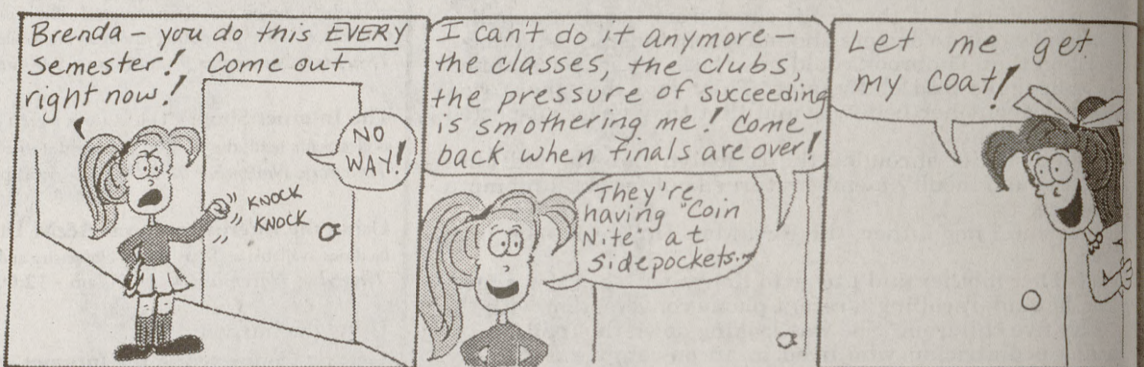 Brenda - you do this EVERY
Semester! Come out
right now!
NO
WAY!
KNOCK
KNOCK
I can't do it anymore -
the classes, the clubs,
the pressure of succeeding
is smothering me! Come
back when finals are over!
They're
having "Coin
Nite" at
Sidepockets...
Let me get
my coat!